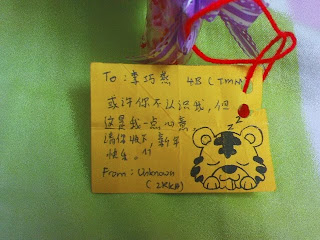 To : 李巧燕 4B (JMM)
或许你不认识我，但
这是我一点心意，
请你收下，新年
快乐。^^
From : Unknown
z z z